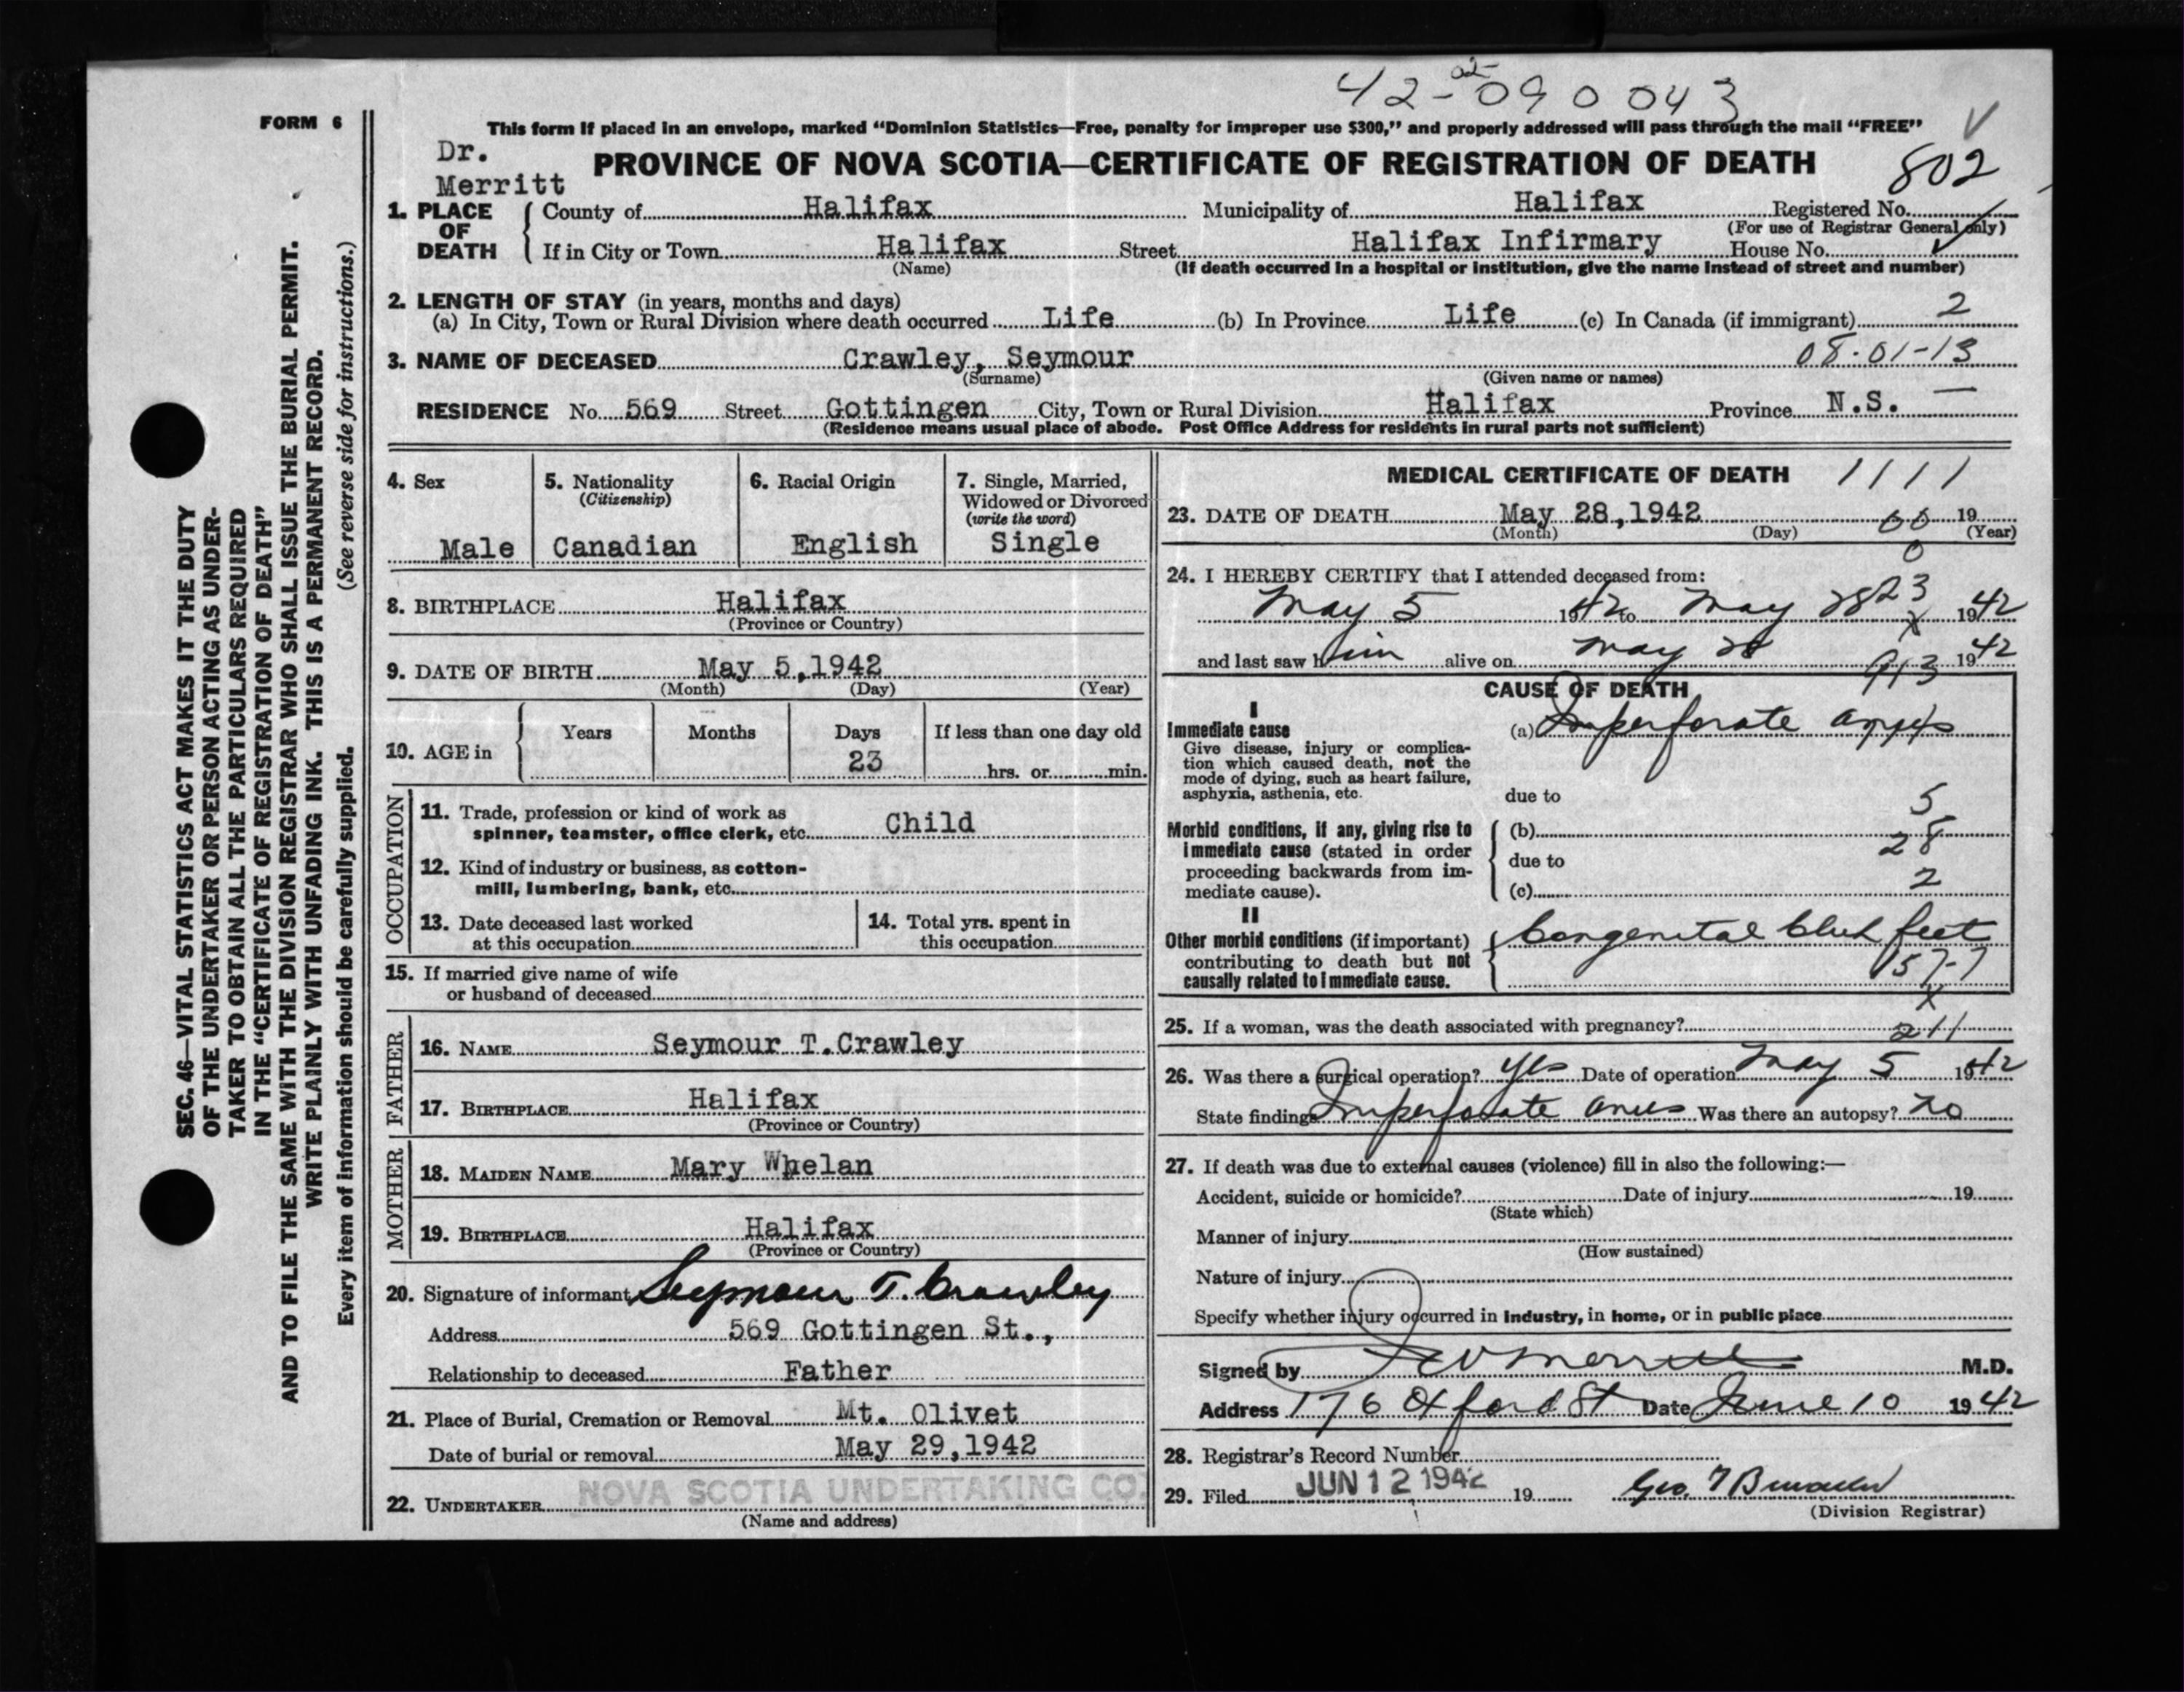 42-02-090043
FORM 6
This form if placed in an envelope, marked "Dominion Statistics—Free, penalty for improper use $300," and properly addressed will pass through the mail "FREE"
Dr.
Merritt
PROVINCE OF NOVA SCOTIA—CERTIFICATE OF REGISTRATION OF DEATH
802
1. PLACE OF DEATH
County of Halifax Municipality of Halifax Registered No.
(For use of Registrar General only)
If in City or Town Halifax Street Halifax Infirmary House No.
(Name) (If death occurred in a hospital or institution, give the name instead of street and number)
2. LENGTH OF STAY (in years, months and days)
(a) In City, Town or Rural Division where death occurred Life (b) In Province Life (c) In Canada (if immigrant) 2
3. NAME OF DECEASED Crawley, Seymour 08-01-13
(Surname) (Given name or names)
RESIDENCE No. 569 Street Gottingen City, Town or Rural Division Halifax Province N.S. —
(Residence means usual place of abode. Post Office Address for residents in rural parts not sufficient)
4. Sex
Male
5. Nationality
(Citizenship)
Canadian
6. Racial Origin
English
7. Single, Married,
Widowed or Divorced
(write the word)
Single
8. BIRTHPLACE Halifax
(Province or Country)
9. DATE OF BIRTH May 5,1942
(Month) (Day) (Year)
10. AGE in
Years Months Days If less than one day old
23 hrs. or min.
OCCUPATION
11. Trade, profession or kind of work as
spinner, teamster, office clerk, etc. Child
12. Kind of industry or business, as cotton-
mill, lumbering, bank, etc.
13. Date deceased last worked
at this occupation
14. Total yrs. spent in
this occupation
15. If married give name of wife
or husband of deceased
FATHER
16. NAME Seymour T.Crawley
17. BIRTHPLACE Halifax
(Province or Country)
MOTHER
18. MAIDEN NAME Mary Whelan
19. BIRTHPLACE Halifax
(Province or Country)
20. Signature of informant Seymour T. Crawley
Address 569 Gottingen St.,
Relationship to deceased Father
21. Place of Burial, Cremation or Removal Mt. Olivet
Date of burial or removal May 29,1942
22. UNDERTAKER NOVA SCOTIA UNDERTAKING CO.
(Name and address)
MEDICAL CERTIFICATE OF DEATH 1111
23. DATE OF DEATH May 28,1942 19
(Month) (Day) (Year)
24. I HEREBY CERTIFY that I attended deceased from:
May 5 1942 to May 28 23 1942
and last saw him alive on May 28 1942
913
CAUSE OF DEATH
I
Immediate cause
Give disease, injury or complica-
tion which caused death, not the
mode of dying, such as heart failure,
asphyxia, asthenia, etc.
(a) Imperforate anus
due to
5
Morbid conditions, if any, giving rise to
immediate cause (stated in order
proceeding backwards from im-
mediate cause).
(b)
28
due to
2
(c)
II
Other morbid conditions (if important)
contributing to death but not
causally related to immediate cause.
Congenital club feet
157-7
x
25. If a woman, was the death associated with pregnancy? 211
26. Was there a surgical operation? Yes Date of operation May 5 1942
State findings Imperforate anus Was there an autopsy? no
27. If death was due to external causes (violence) fill in also the following:—
Accident, suicide or homicide? Date of injury 19
(State which)
Manner of injury
(How sustained)
Nature of injury
Specify whether injury occurred in industry, in home, or in public place
Signed by Merritt M.D.
Address 176 Oxford St Date June 10 1942
28. Registrar's Record Number
29. Filed JUN 12 1942 19 Geo.
(Division Registrar)
SEC. 46—VITAL STATISTICS ACT MAKES IT THE DUTY
OF THE UNDERTAKER OR PERSON ACTING AS UNDER-
TAKER TO OBTAIN ALL THE PARTICULARS REQUIRED
IN THE "CERTIFICATE OF REGISTRATION OF DEATH"
AND TO FILE THE SAME WITH THE DIVISION REGISTRAR WHO SHALL ISSUE THE BURIAL PERMIT.
WRITE PLAINLY WITH UNFADING INK. THIS IS A PERMANENT RECORD.
Every item of information should be carefully supplied. (See reverse side for instructions.)